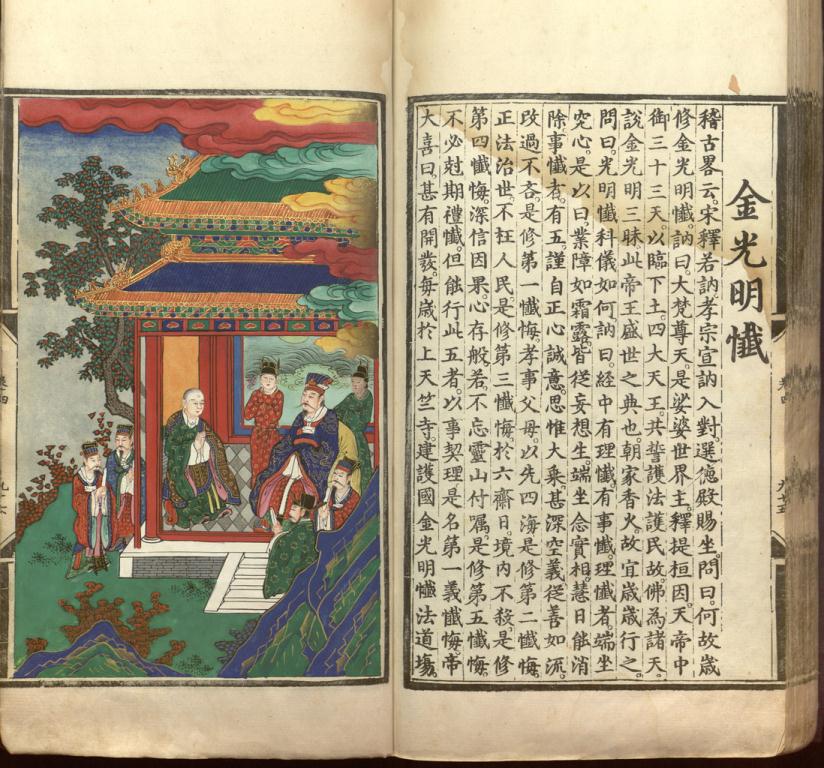 金光明懺
稽古畧云。宋釋若訥。孝宗宣訥入對。選德殿賜坐。問曰。何故歲
修金光明懺。訥曰。大梵尊天。是娑婆世界主。釋提桓因。天帝中
御三十三天。以臨下土。四大天王。共誓護法護民。故佛為諸天。
說金光明三昧。此帝王盛世之典也。朝家香火。故宜歲歲行之。
問曰。光明懺科儀如何。訥曰。經中有理懺。有事懺。理懺者。端坐
究心。是以曰業障如霜露。皆從妄想生。端坐念實相。慧日能消
除。事懺者。有五。謹自正心誠意。思惟大乘。甚深空義。從善如流。
改過不吝。是修第一懺悔。孝事父母。以先四海。是修第二懺悔。
正法治世。不枉人民。是修第三懺悔。於六齋日。境內不殺。是修
第四懺悔。深信因果。心存般若。不忘靈山付囑。是修第五懺悔。
不必尅期禮懺。但能行此五者。以事契理。是名第一義懺悔。帝
大喜曰。甚有開發。每歲於上天竺寺。建護國金光明懺法道場。
卷四